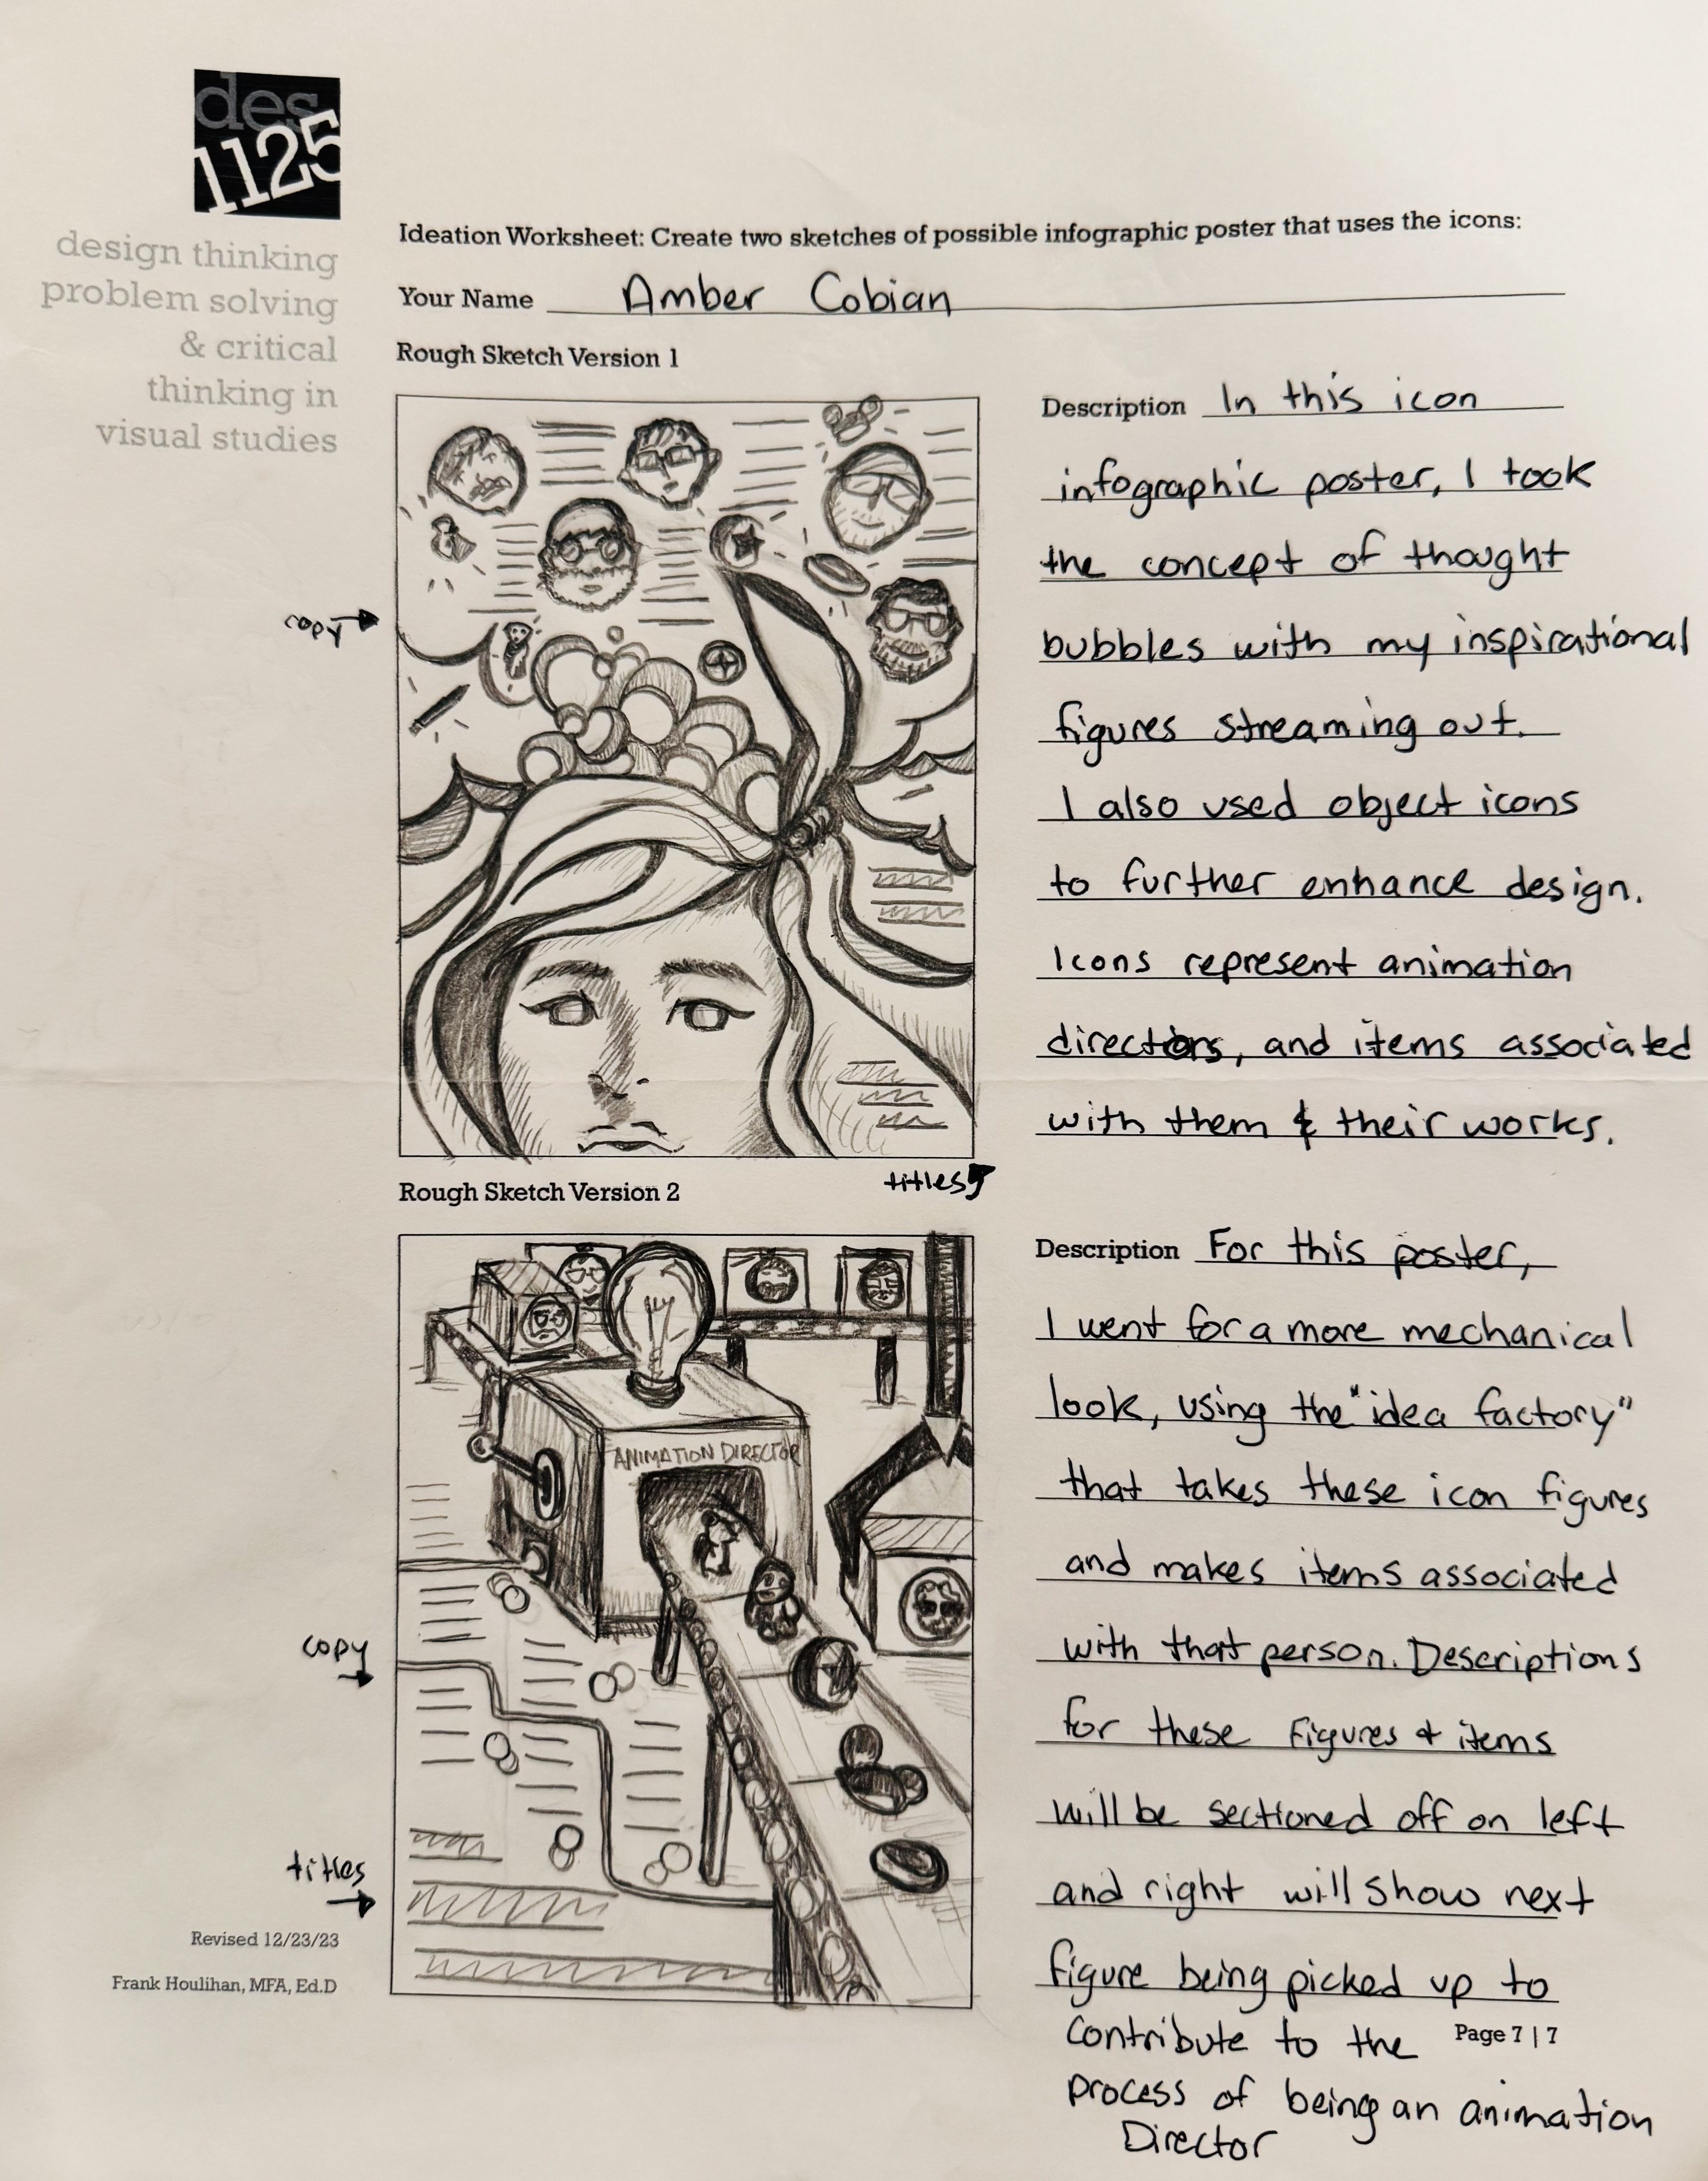 des
1125
design thinking
problem solving
& critical
thinking in
visual studies
Ideation Worksheet: Create two sketches of possible infographic poster that uses the icons:
Your Name Amber Cobian
Rough Sketch Version 1
copy
titles
Description In this icon
infographic poster, I took
the concept of thought
bubbles with my inspirational
figures streaming out.
I also used object icons
to further enhance design.
Icons represent animation
directors, and items associated
with them & their works.
Rough Sketch Version 2
ANIMATION DIRECTOR
copy
titles
Description For this poster,
I went for a more mechanical
look, using the "idea factory"
that takes these icon figures
and makes items associated
with that person. Descriptions
for these Figures + items
will be sectioned off on left
and right will show next
figure being picked up to
contribute to the
process of being an animation
Director
Revised 12/23/23
Frank Houlihan, MFA, Ed.D
Page 7 | 7